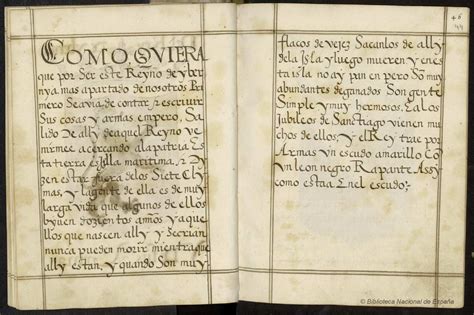 COMO, QVIERA
que por Ser este Reyno de yber
nya mas apartado de nosotros Pri
mero Seavia de contar, y escrivir
Sus cosas y armas empero, Sa
lido De ally de aquel Reyno ve
nirmee acercando ala patria. Es
ta tierra es ysla maritima, y Di
zen estar fuera delos Siete Cli
mas, y la gente de ella es de muy
larga vida que algunos de ellos
biven dozientos años y aque
llos que nascen ally y Secrian
nunca pueden morir mientra que
ally estan, y quando Son muy
46
44
flacos de vejez Sacanlos de ally
dela isla y luego mueren y enes
ta isla no ay pan en pero Son muy
abundantes deganados Son gente
Simple y muy hermosos. Ealos
Jubileos de Sanctiago vienen mu
chos de ellos, y el Rey trae por
Armas un escudo amarillo Co
un leon negro Rapante. Assy
como estaa Enel escudo;
© Biblioteca Nacional de España